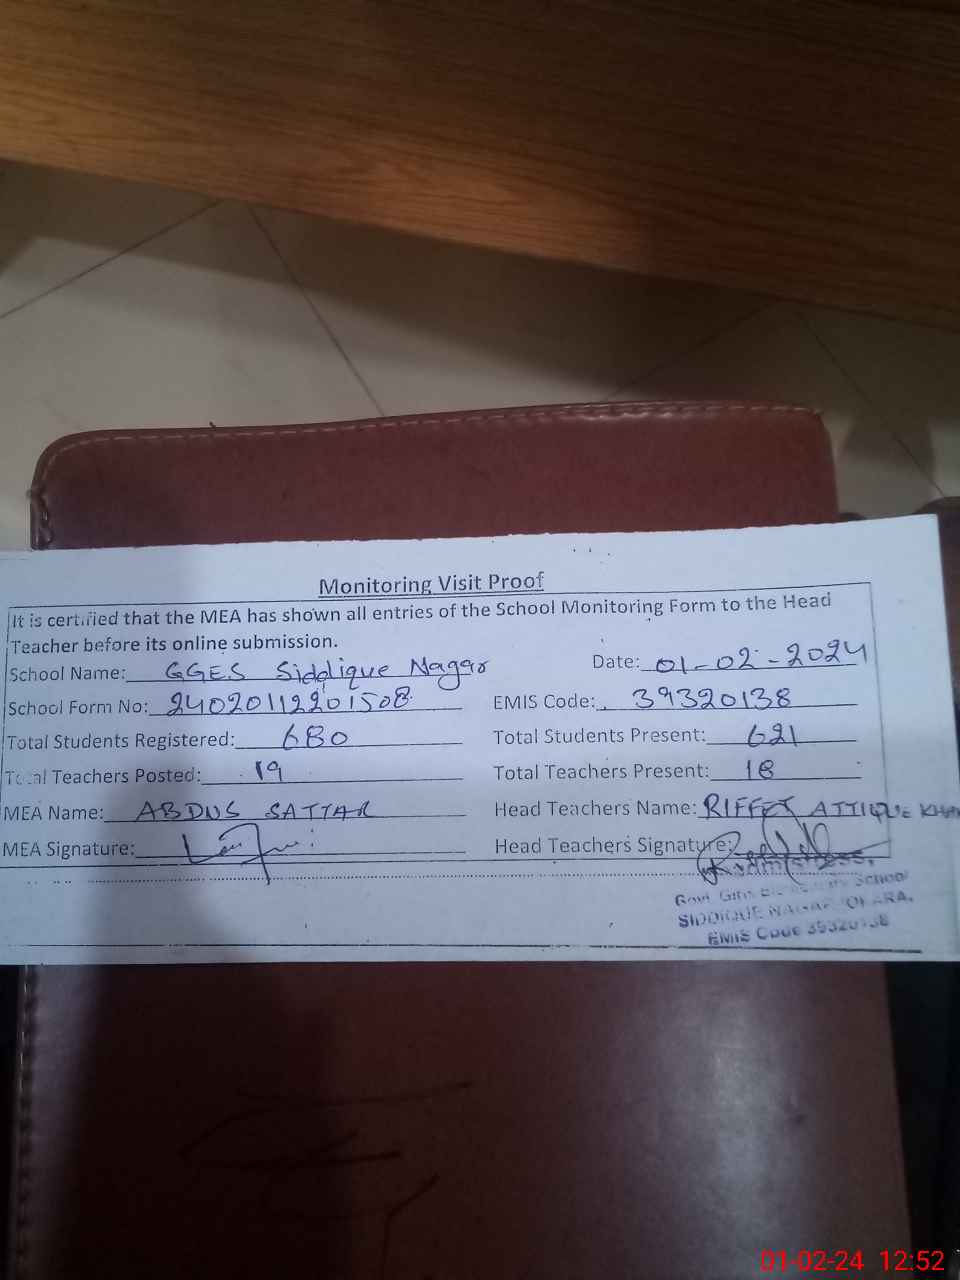 Monitoring Visit Proof
It is certified that the MEA has shown all entries of the School Monitoring Form to the Head
Teacher before its online submission.
School Name: GGES Siddique Nagar Date: 01-02-2024
School Form No: 24020112201508 EMIS Code: 39320138
Total Students Registered: 680 Total Students Present: 621
Total Teachers Posted: 19 Total Teachers Present: 18
MEA Name: ABDUS SATTAR Head Teachers Name: RIFFET ATTIQUE KHAN
MEA Signature: Head Teachers Signature:
Headmistress,
Govt. Girls Elementary School
SIDDIQUE NAGAR OKARA.
EMIS Code 39320138
01-02-24 12:52